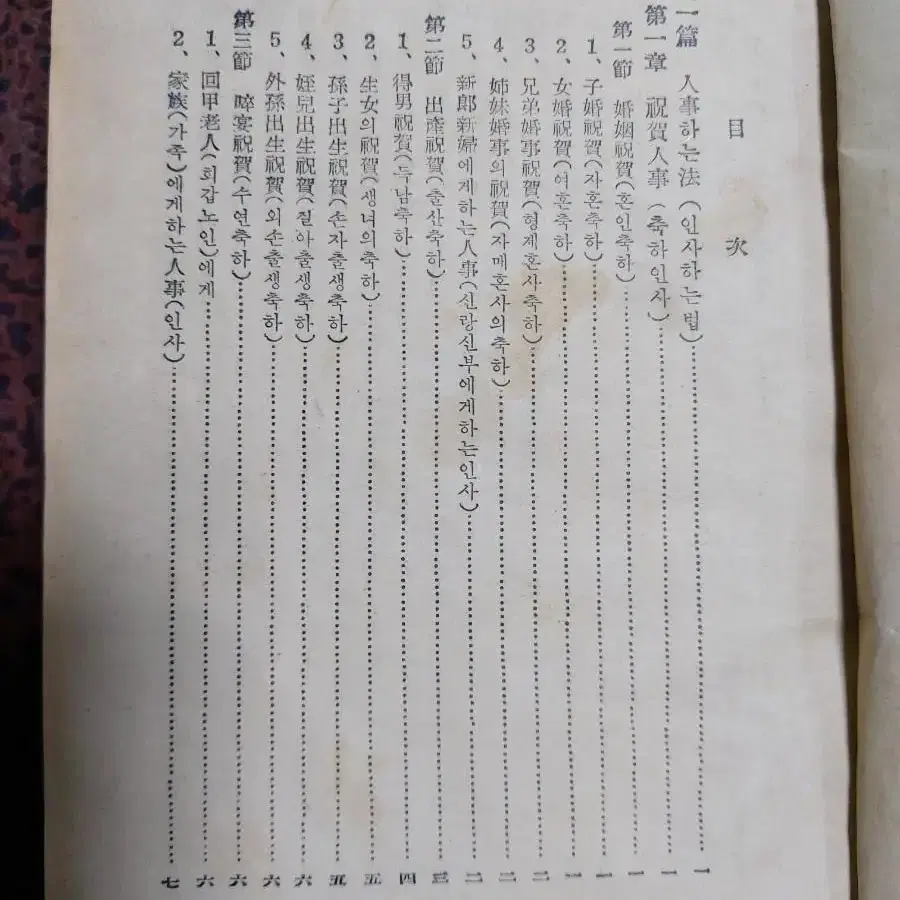 目次
一篇 人事하는法 (인사하는법)……一
第一章 祝賀人事 (축하인사)……一
第一節 婚姻祝賀(혼인축하)……一
1、子婚祝賀(자혼축하)……一
2、女婚祝賀(여혼축하)……一
3、兄弟婚事祝賀(형제혼사축하)……二
4、姉妹婚事의祝賀(자매혼사의축하)……二
5、新郞新婦에게하는人事(신랑신부에게하는인사)……二
第二節 出產祝賀(출산축하)……三
1、得男祝賀(득남축하)……四
2、生女의祝賀(생녀의축하)……五
3、孫子出生祝賀(손자출생축하)……五
4、姪兒出生祝賀(질아출생축하)……六
5、外孫出生祝賀(외손출생축하)……六
第三節 晬宴祝賀(수연축하)……六
1、回甲老人(회갑노인)에게……六
2、家族(가족)에게하는人事(인사)……七